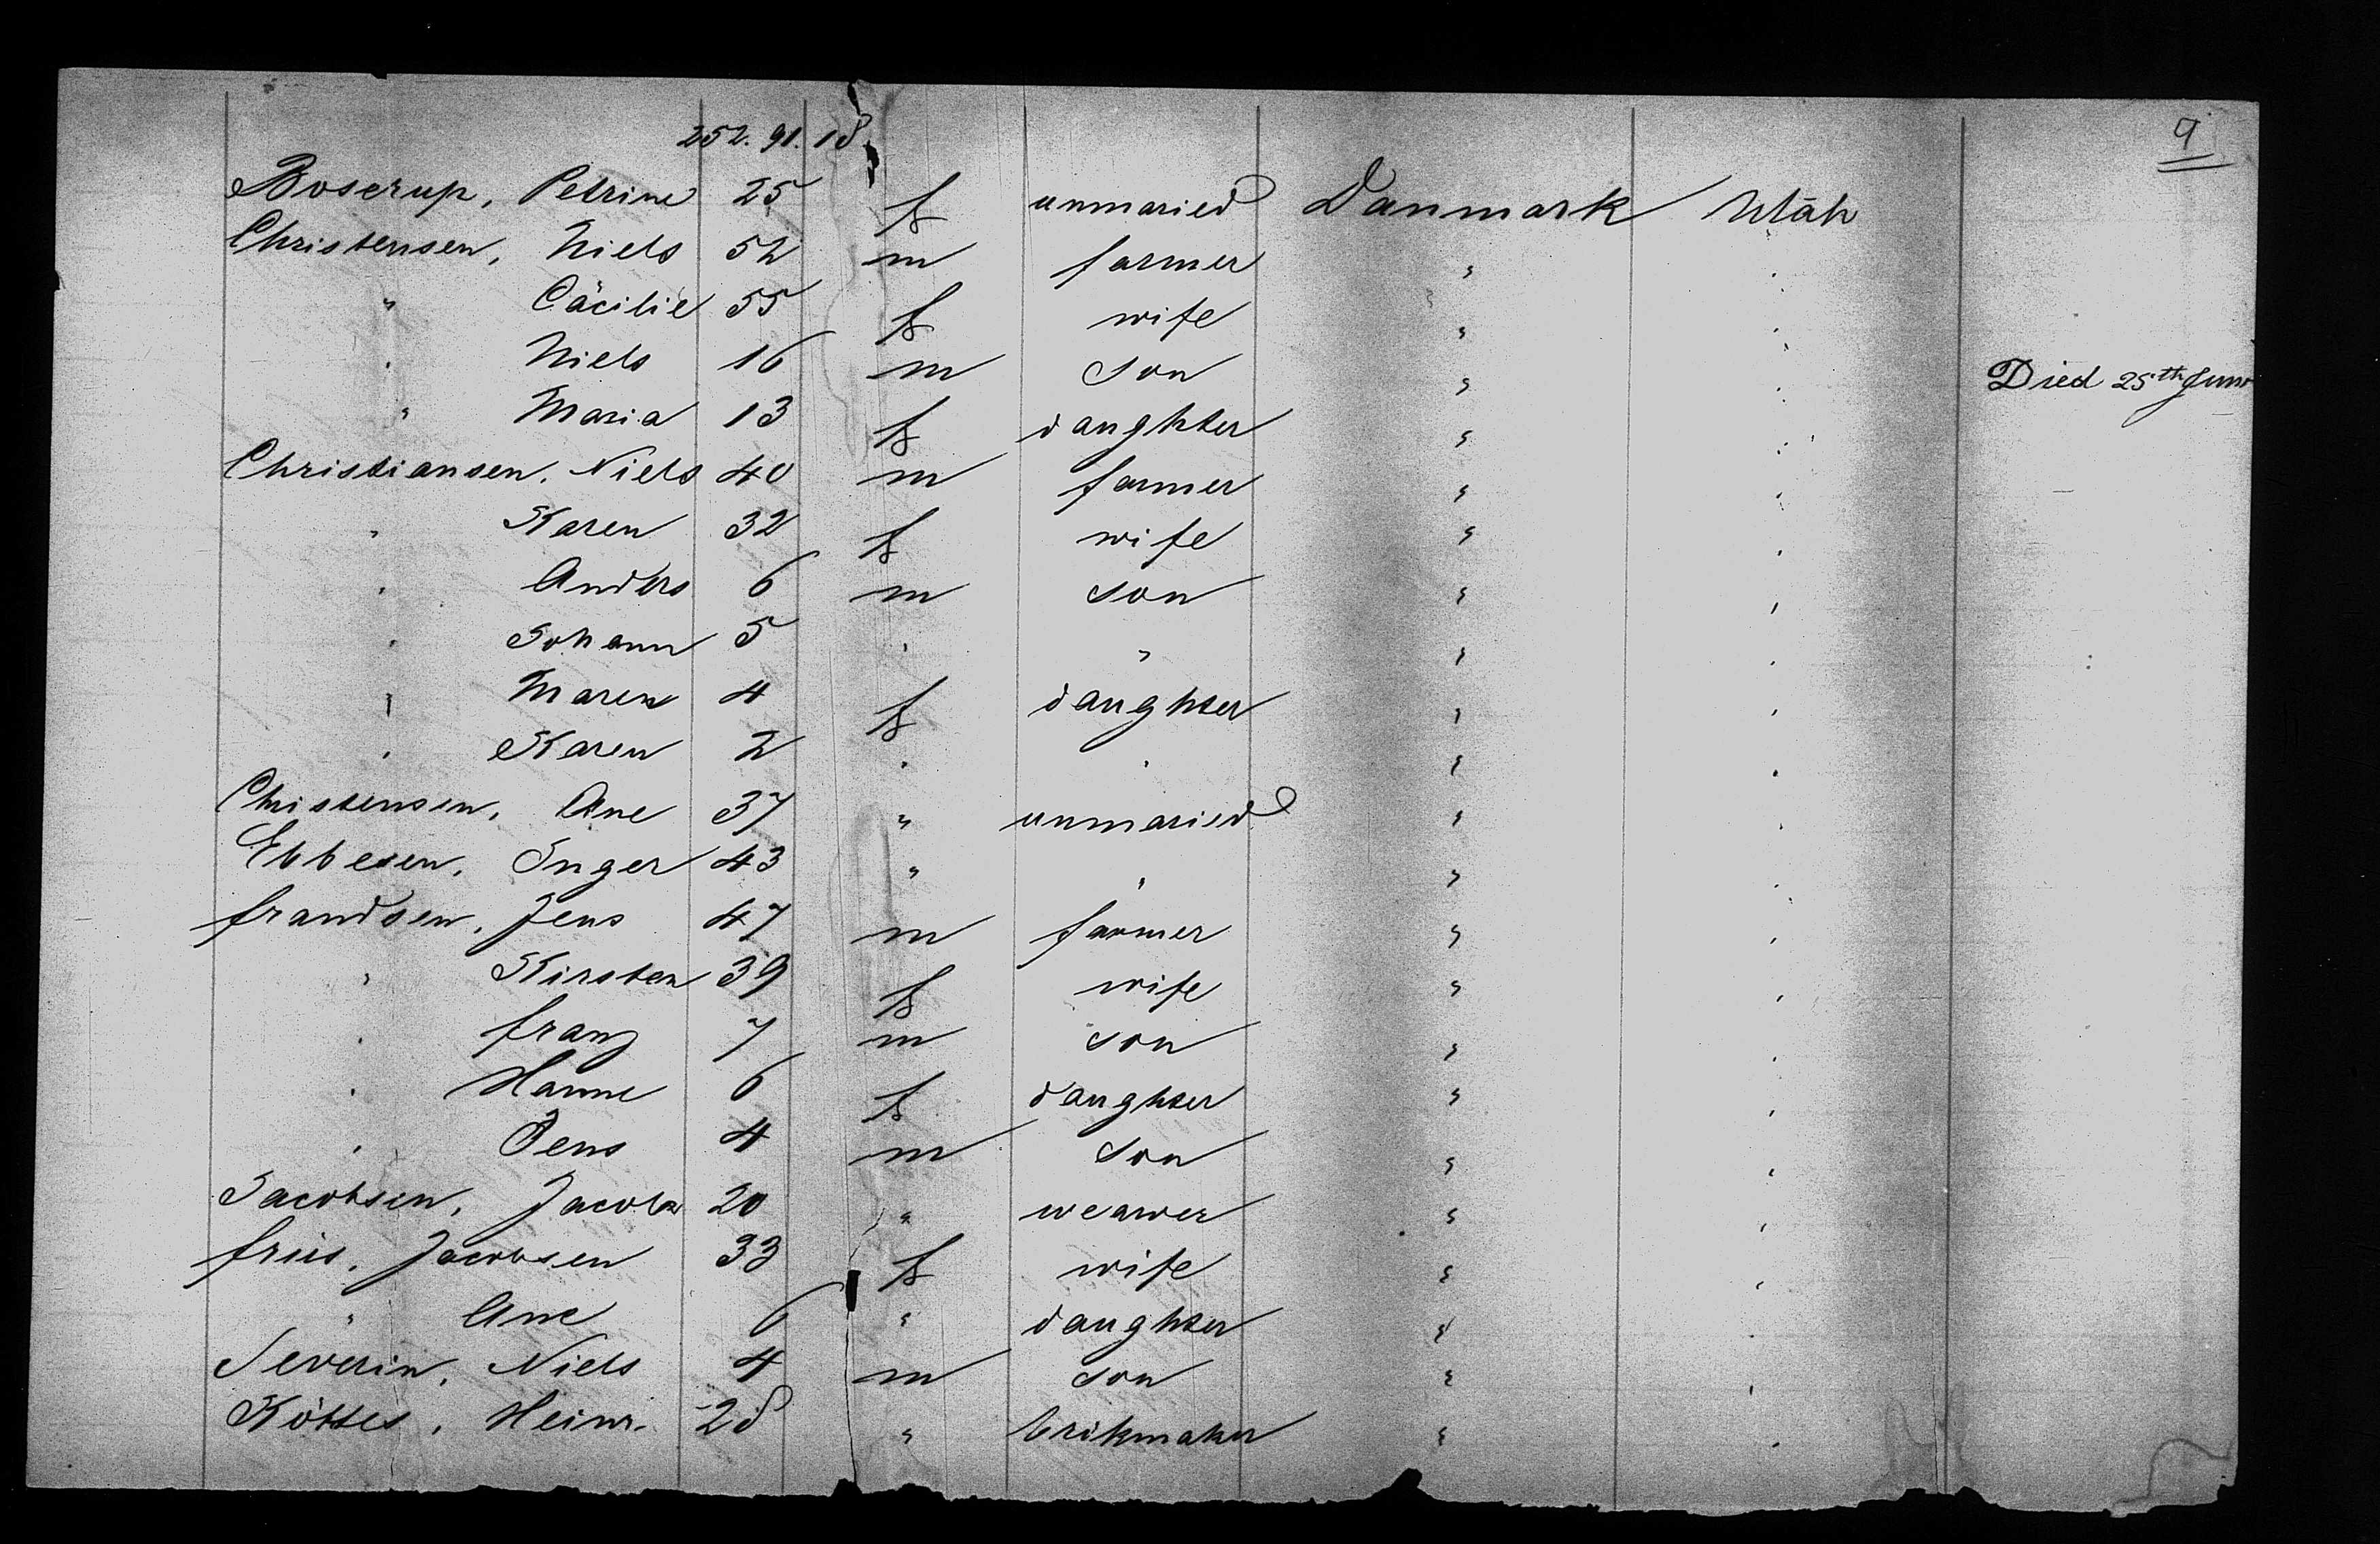 252. 91. 18
9
Boserup, Petrine 25 f unmaried Danmark Utah
Christensen, Niels 52 m farmer " "
" Cäcilie 55 f wife " "
" Niels 16 m son " " Died 25th June
" Maria 13 f daughter " "
Christiansen, Niels 40 m farmer " "
" Karen 32 f wife " "
" Anders 6 m son " "
" Johann 5 " " " "
" Maren 4 f daughter " "
" Karen 2 " " " "
Christensen, Ane 37 " unmaried " "
Ebbesen, Inger 43 " " " "
Frandsen, Jens 47 m farmer " "
" Kirsten 39 f wife " "
" Franz 7 m son " "
" Hanne 6 f daughter " "
" Jens 4 m son " "
Jacobsen, Jacob 20 " weawer " "
Friis, Jacobsen 33 f wife " "
" Ane 6 " daughter " "
Severin, Niels 4 m son " "
Heinr. 28 " brikmaker " "